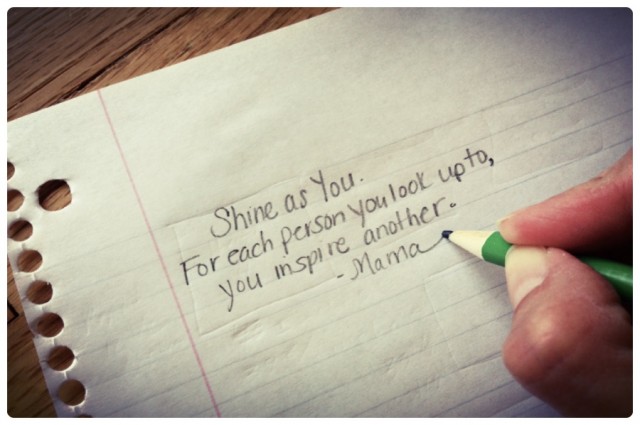 Shine as You.
For each person you look up to,
you inspire another.
-Mama